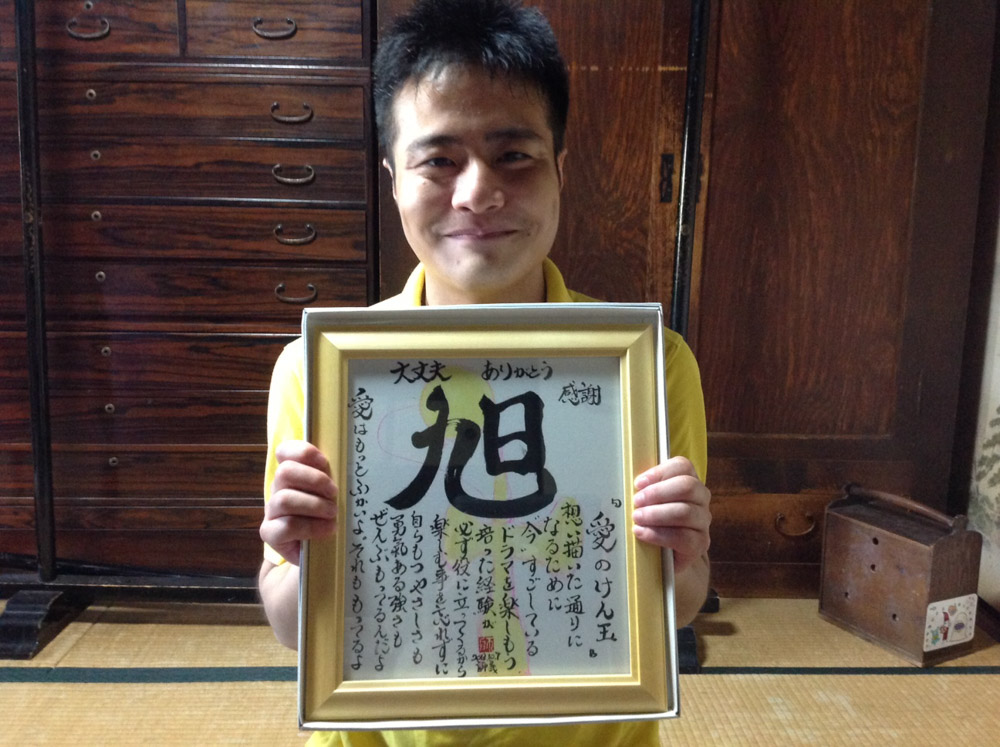 大丈夫　ありがとう
感謝
旭
「愛のけん玉」
想い描いた通りに
なるために
今、すごしている
ドラマを楽しもう
培った経験が
必ず役に立ってくるから
楽しむ事を忘れずに
自らもつやさしさも
勇気ある強さも
ぜんぶもってるんだよ
愛はもっとふかいよ、それももってるよ